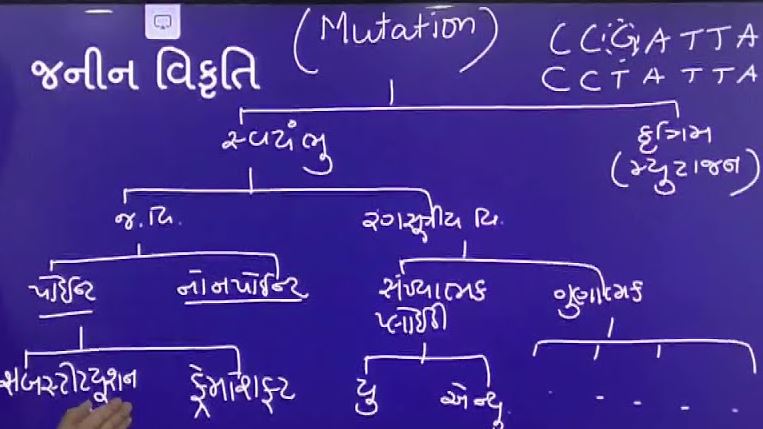 (Mutation)
CCGATTA
CCTATTA
જનીન વિકૃતિ
સ્વયંભુ
કૃત્રિમ
(મ્યુટાજન)
જ.વિ.
રંગસૂત્રીય વિ.
પોઈન્ટ
નોનપોઈન્ટ
સંખ્યાત્મક
પ્લોઈડી
ગુણાત્મક
સબસ્ટીટ્યુશન
ફ્રેમશિફ્ટ
યુ
એન્યુ